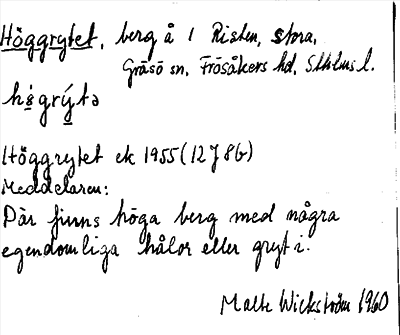 Höggrytet, berg å 1 Risten, stora,
Gräsö sn, Frösåkers hd, Sthlms l.
hö̀grýtə
Höggrytet ek 1955 (12J 8b)
Meddelaren:
Där finns höga berg med några
egendomliga hålor eller gryt i.
Malte Wickström 1960